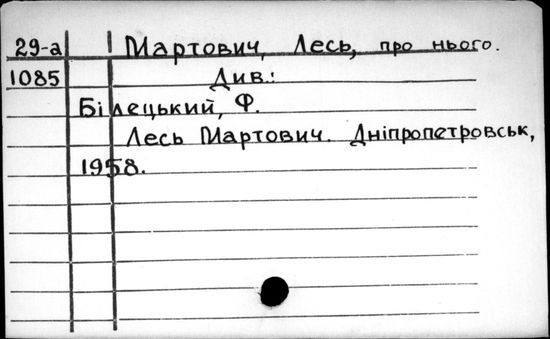 29-а Мартович, Лесь, про нього.
1085 Див.:
Білецький, Ф.
Лесь Мартович. Дніпропетровськ,
1958.